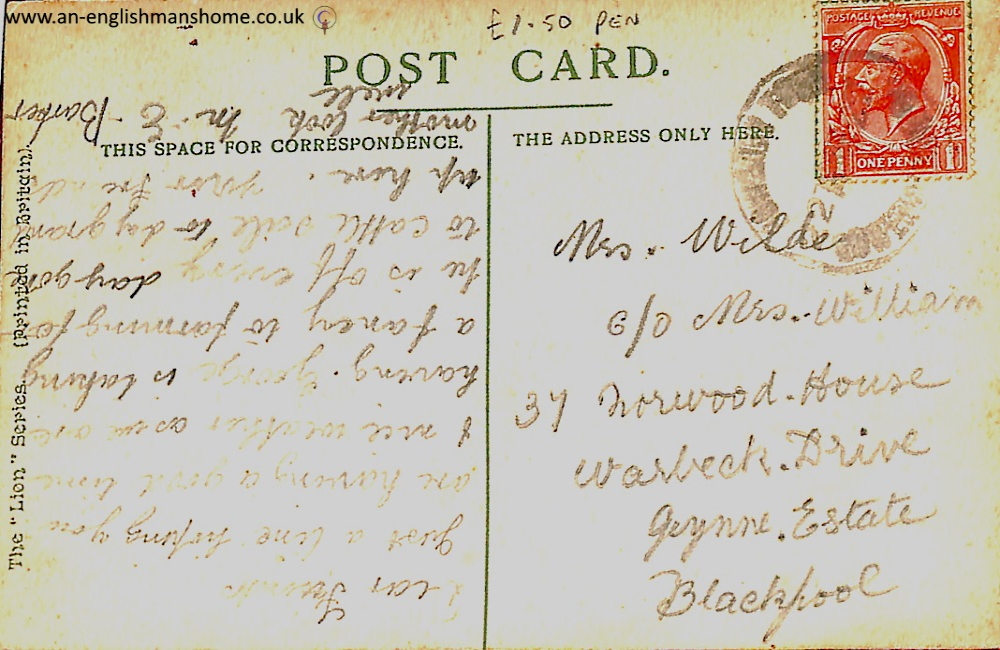 www.an-englishmanshome.co.uk ©
£1.50 PEN
POST CARD.
THIS SPACE FOR CORRESPONDENCE.
THE ADDRESS ONLY HERE.
POSTAGE REVENUE
1 ONE PENNY 1
The "Lion" Series. (Printed in Britain).
Dear Friends
Just a line hoping you
are having a good time
& nice weather as we are
having. George is taking
a fancy to farming for
he is off every day gone
to cattle sale to day grand
up here. Your Friend
another look M. E. Barker
Mrs. Wilde
c/o Mrs. William
37 Norwood. House
Warbeck. Drive
Gynne. Estate
Blackpool